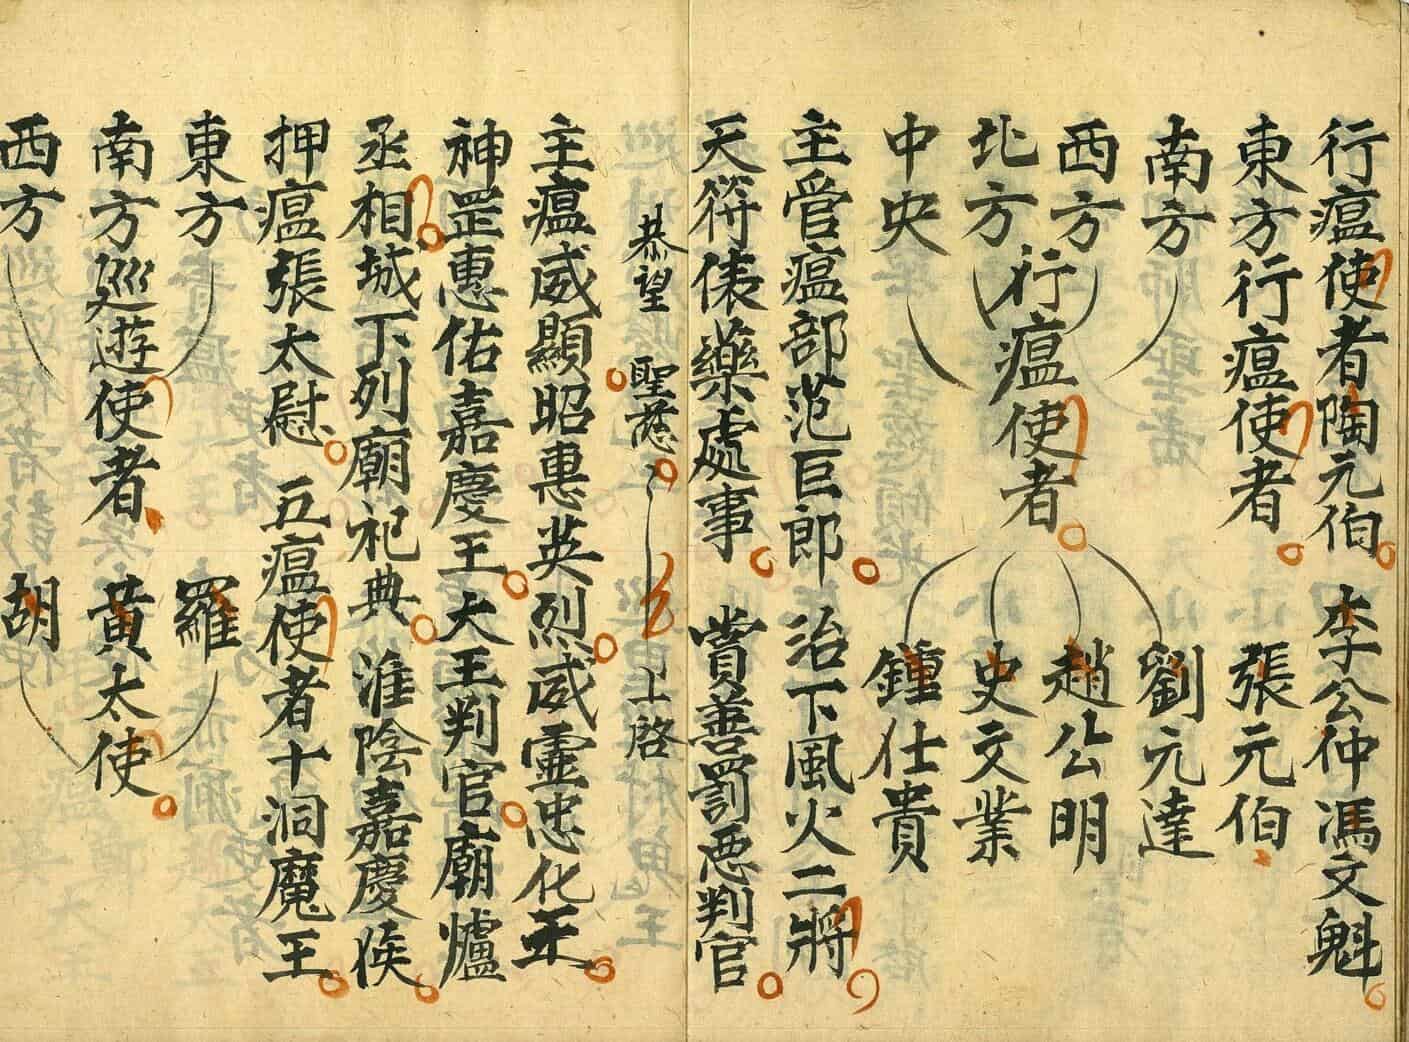 行瘟使者陶元伯 李公仲馮文魁
東方行瘟使者 張元伯
南方 劉元達
西方行瘟使者 趙公明
北方 史文業
中央 鍾仕貴
主管瘟部范巨郎 治下風火二將
天符俵藥處事 賞善罰惡判官
恭望 聖慈 上啓
主瘟威顯昭惠英烈威靈忠化王
神罡惠佑嘉慶王大王判官廟爐
丞相城下列廟祀典 淮陰嘉慶侯
押瘟張太尉 五瘟使者十洞魔王
東方 羅
南方巡遊使者 黃太使
西方 胡